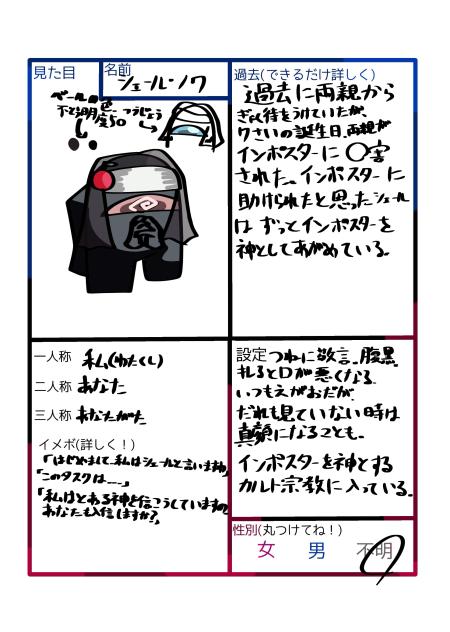 見た目
名前
シェール・ノワ
ベール
不透明度50
過去(できるだけ詳しく)
過去に両親から
ぎゃく待をうけていたが、
7さいの誕生日、両親が
インポスターに〇害
された。インポスターに
助けられたと思ったシェール
はずっとインポスターを
神としてあがめている。
一人称 私(わたくし)
二人称 あなた
三人称 あなたがた
イメボ(詳しく!)
「はじめまして、私はシェールと言いますわ」
「このタスクは……」
「私はとある神を信こうしていますの
あなたも入信しますか?」
設定 つねに敬言。腹黒
キレると口が悪くなる。
いつもえがおだが、
だれも見ていない時は
真顔になることも。
インポスターを神とする
カルト宗教に入っている。
性別(丸つけてね!)
女 男 不明